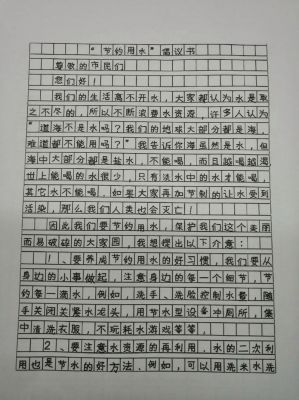 “节约用水”倡议书
尊敬的市民们
您们好！
我们的生活离不开水，大家都认为水是取
之不尽的，所以不断浪费水资源，许多人认为
“道海不是水吗？我们的地球大部分都是海，
难道都不能用吗？”我告诉你海虽然是水，但
海中大部分都是盐水，不能喝，而且越喝越渴
世上能喝的水很少，只有淡水中的水才能喝，
其它水不能喝，如果大家再加节制的让水受到
活染，那么我们人类也会灭亡！
因此我们要节约用水，保护我们这个美丽
而易破碎的大家园，我想提出以下介意：
1、要养成节约用水的好习惯，我们要从
身边的小事做起，注意身边的每一个细节，节
约每一滴水，例如，洗手、洗脸控制水量，随
手关闭关紧水龙头，用节水型设备冲厕所，集
中清洗衣服，不玩耗水游戏等等，
2、要注意水资源的再利用，水的二次利
用也是节水的好方法，例如，可以用洗米水洗